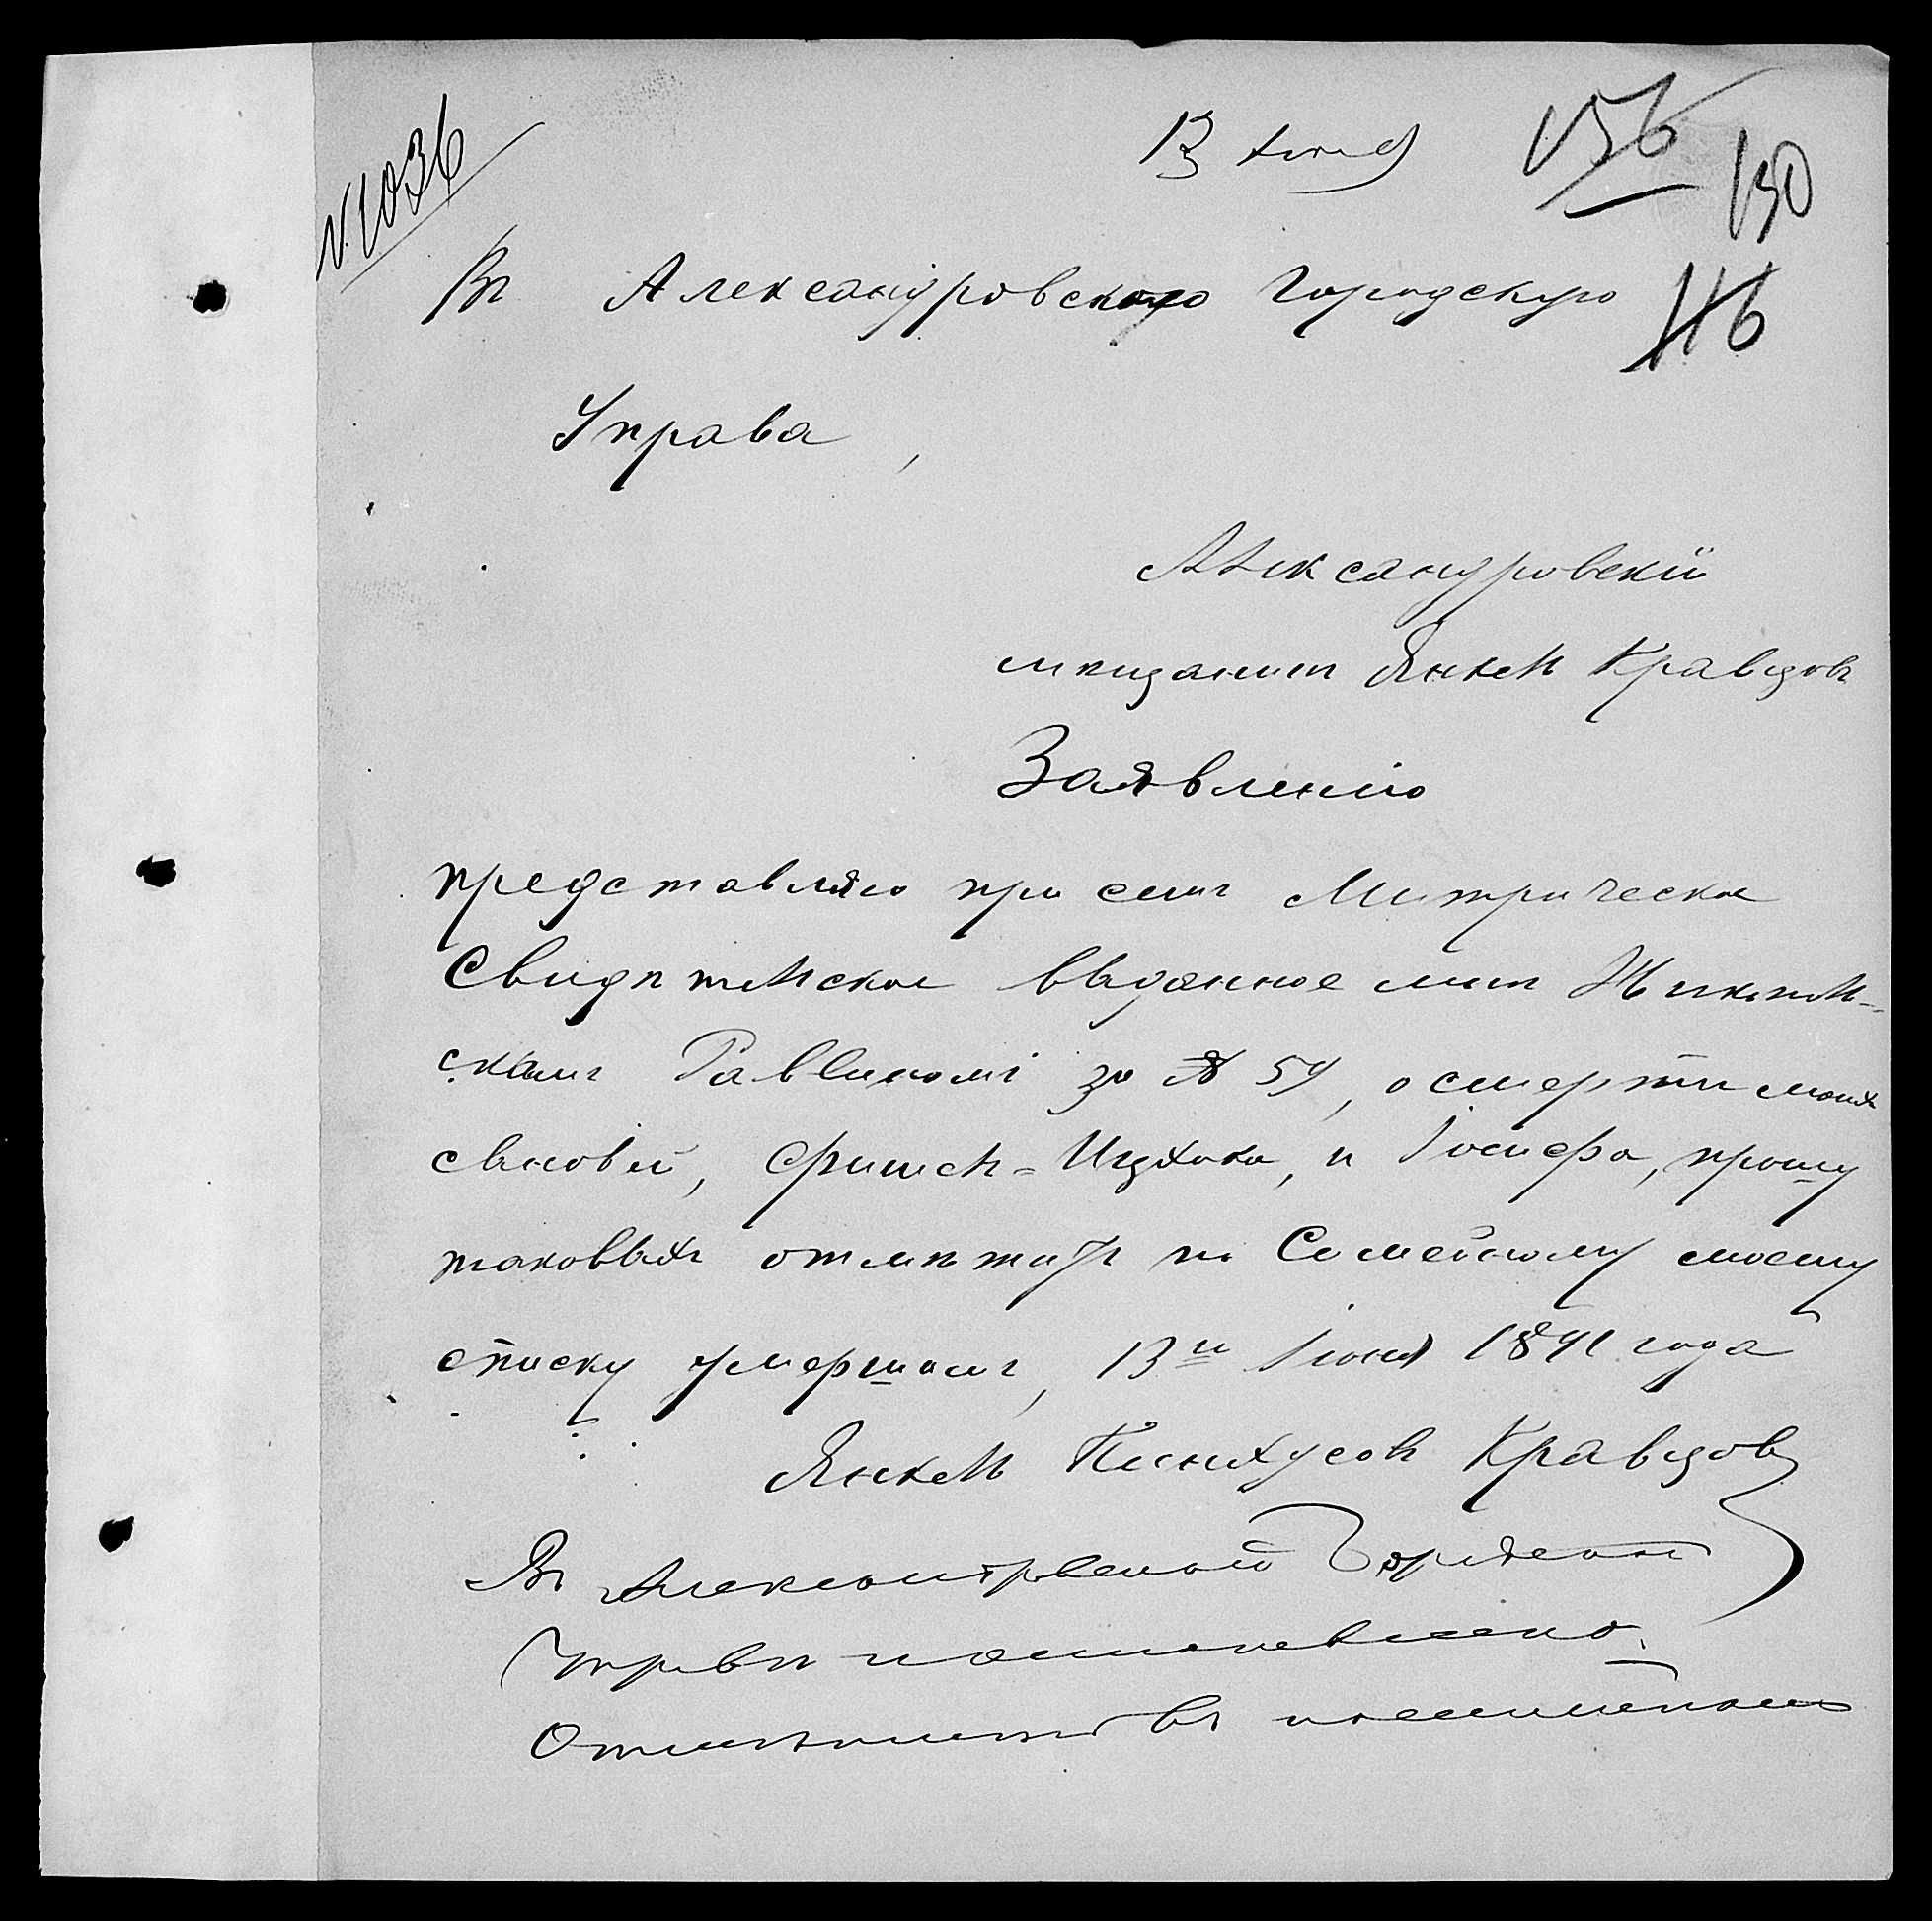 № 1036
13 Іюня
156
150
116
Въ Александровскую Городскую
Управа,
Александровскій
мищанинъ Янкель Кравцовъ
Заявленію
представляю при семъ Митрическое
Свидѣтельское выданное мнѣ
скимъ Раввиномъ за № 54, о смерти моихъ
сыновей, Фишель-Ицхока, и Іосифа, прошу
таковыхъ отмѣтить по Семейному моему
списку умершимъ, 13го Іюня 1891 года
Янкель Пинхусовъ Кравцовъ
Въ Александровской Городской
Управѣ
въ